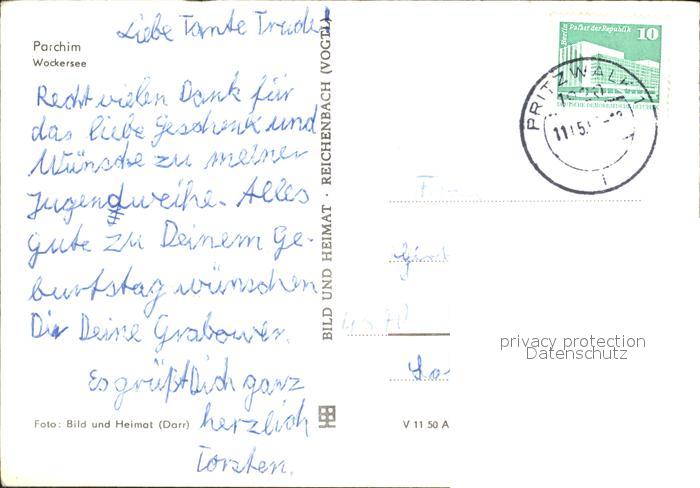 Liebe Tante Trudel
Parchim
Wockersee
Recht vielen Dank für
das liebe Geschenk und
Wünsche zu meiner
Jugendweihe. Alles
Gute zu Deinem Ge-
burtstag wünschen
Dir Deine Grabower.
Es grüßt Dich ganz
herzlich
Torsten.
Foto: Bild und Heimat (Darr)
BILD UND HEIMAT · REICHENBACH (VOGTL)
V 11 50 A
Berlin Palast der Republik
10
PRITZWALK 1
1920
privacy protection
Datenschutz